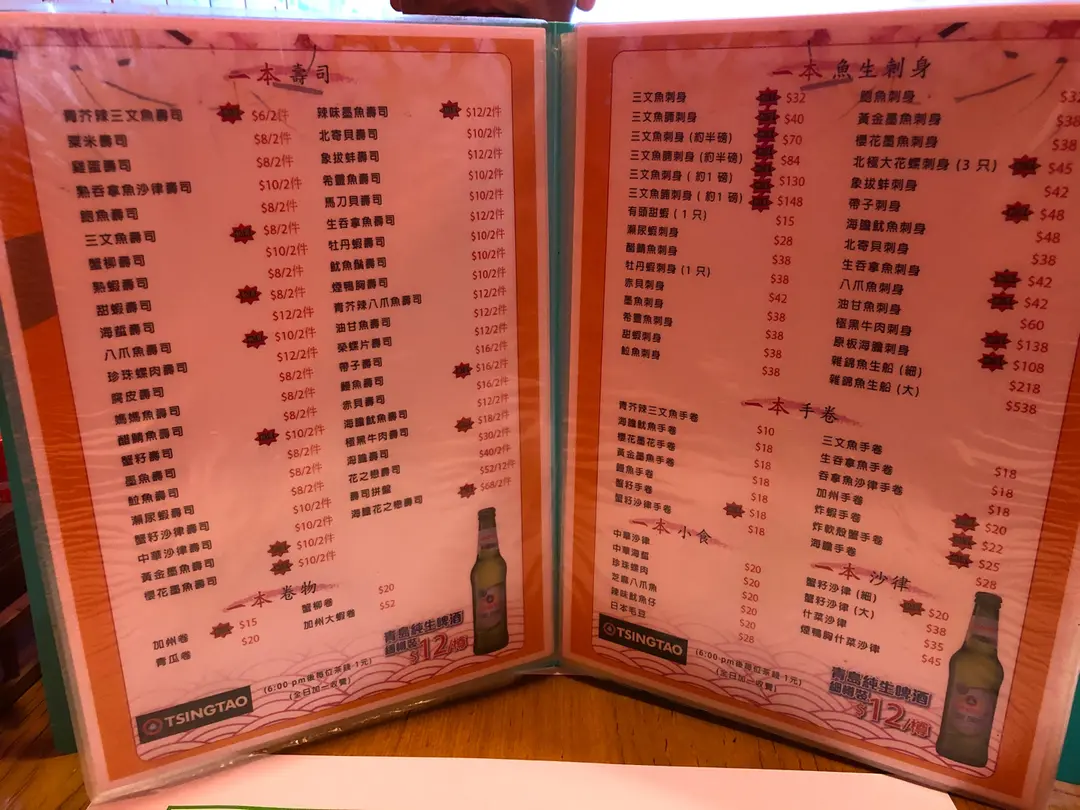 一本壽司
青芥辣三文魚壽司 $6/2件
粟米壽司 $8/2件
雞蛋壽司 $8/2件
熱吞拿魚沙律壽司 $10/2件
魚壽司 $8/2件
三文魚壽司 $8/2件
蟹柳壽司 $10/2件
熟蝦壽司 $8/2件
甜蝦壽司 $8/2件
海蜇壽司 $12/2件
八爪魚壽司 $10/2件
珍珠螺肉壽司 $12/2件
腐皮壽司 $8/2件
媽媽魚壽司 $8/2件
醋鯖魚壽司 $8/2件
蟹籽壽司 $10/2件
墨魚壽司 $8/2件
魚壽司 $8/2件
瀨尿蝦壽司 $8/2件
蟹籽沙律壽司 $10/2件
中華沙律壽司 $10/2件
黃金墨魚壽司 $10/2件
櫻花墨魚壽司 $10/2件
辣味墨魚壽司 $12/2件
北寄貝壽司 $10/2件
象拔蚌壽司 $12/2件
希靈魚壽司 $10/2件
馬刀貝壽司 $10/2件
生吞拿魚壽司 $12/2件
牡丹蝦壽司 $10/2件
魷魚鬚壽司 $10/2件
煙鴨胸壽司 $10/2件
青芥辣八爪魚壽司 $12/2件
油甘魚壽司 $12/2件
榮螺片壽司 $12/2件
帶子壽司 $16/2件
鰻魚壽司 $16/2件
赤貝壽司 $16/2件
海膽魷魚壽司 $12/2件
極黑牛肉壽司 $18/2件
海膽壽司 $30/2件
花之戀壽司 $40/2件
壽司拼盤 $52/12件
海膽花之戀壽司 $68/2件
一本卷物
加州卷 $15
青瓜卷 $20
蟹柳卷 $20
加州大蝦卷 $52
青島純生啤酒
細樽裝
$12/樽
TSINGTAO
(6:00 pm後每位茶錢 1元)
(全日加一收費)
一本魚生刺身
三文魚刺身 $32
三文魚腩刺身 $40
三文魚刺身 (約半磅) $70
三文魚腩刺身 (約半磅) $84
三文魚刺身 ( 約1 磅) $130
三文魚腩刺身 ( 約1 磅) $148
有頭甜蝦 ( 1 只) $15
瀨尿蝦刺身 $28
醋鯖魚刺身 $38
牡丹蝦刺身 (1 只) $38
赤貝刺身 $42
墨魚刺身 $38
希靈魚刺身 $38
甜蝦刺身 $38
魚刺身 $38
魚刺身 $32
黃金墨魚刺身 $38
櫻花墨魚刺身 $38
北極大花螺刺身 (3 只) $45
象拔蚌刺身 $42
帶子刺身 $48
海膽魷魚刺身 $48
北寄貝刺身 $38
生吞拿魚刺身 $42
八爪魚刺身 $42
油甘魚刺身 $60
極黑牛肉刺身 $138
原板海膽刺身 $108
雜錦魚生船 (細) $218
雜錦魚生船 (大) $538
一本手卷
青芥辣三文魚手卷 $10
海膽魷魚手卷 $18
櫻花墨花手卷 $18
黃金墨魚手卷 $18
鰻魚手卷 $18
蟹籽手卷 $18
蟹籽沙律手卷 $18
三文魚手卷 $18
生吞拿魚手卷 $18
吞拿魚沙律手卷 $18
加州手卷 $20
炸蝦手卷 $22
炸軟殼蟹手卷 $25
海膽手卷 $28
一本小食
中華沙律 $20
中華海蜇 $20
珍珠螺肉 $20
芝麻八爪魚 $20
辣味魷魚仔 $20
日本毛豆 $28
一本沙律
蟹籽沙律 (細) $20
蟹籽沙律 (大) $38
什菜沙律 $35
煙鴨胸什菜沙律 $45
TSINGTAO
(6:00 pm後每位茶錢 1元)
(全日加一收費)
青島純生啤酒
細樽裝
$12/樽